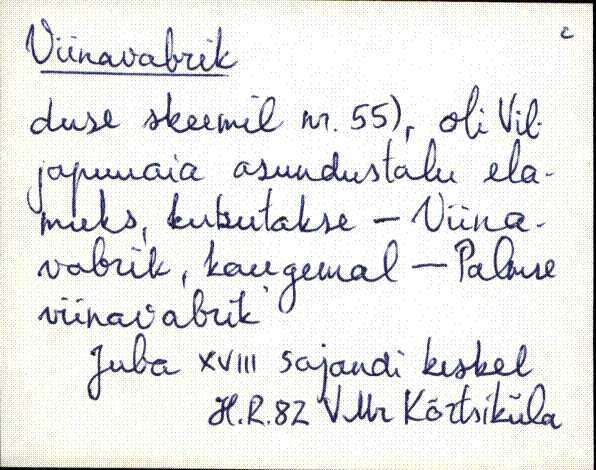 Viinavabrik 2
duse skeemil nr. 55), oli Vil-
japuuaia asundustalu ela-
muks, kutsutakse – Viina-
vabrik, kaugemal – Palmse
viinavabrik
Juba XVIII sajandi keskel
H.R.82 VMr Kõrtsiküla